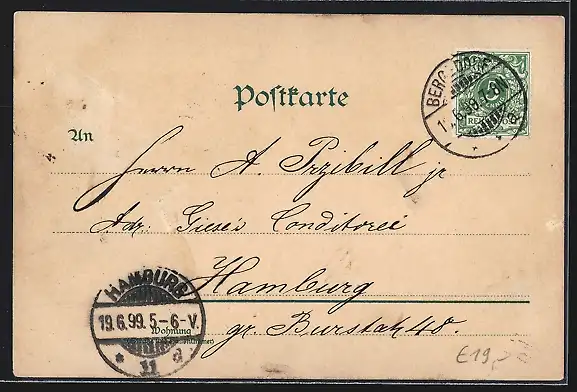 Postkarte
BERGEDORF
6.99.
An
Herrn A. Przibill jr
Adr. Giese's Conditorei
Hamburg
Wohnung
gr. Burstah 40.
HAMBURG
19.6.99.5-6-V.
* 11 a
€19,-